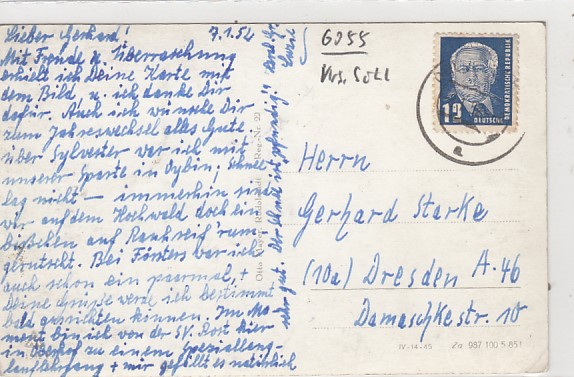 Lieber Gerhard! 7.1.52
Mit Freude u. Überraschung
erhielt ich Deine Karte mit
dem Bild, u. ich danke Dir
dafür. Auch ich wünsche Dir
zum Jahreswechsel alles Gute.
Über Sylvester war ich mit
unserer Sparte in Oybin; Schnee
lag nicht – immerhin sind
wir auf dem Hochwald doch ein
bißchen auf Rauhreif 'rum-
gerutscht. Bei Försters war ich
auch schon ein paarmal, +
Deine Grüße werde ich bestimmt
bald ausrichten können. Im Mo-
ment bin ich von der SV. Post hier
in Oberhof zu einem Speziallang-
lauflehrgang + mir gefällt es natürlich
sehr gut. Der Schnee ist großartig!
6255
Krs. Soll
DEUTSCHE
DEMOKRATISCHE REPUBLIK
Herrn
Gerhard Starke
(10a) Dresden A-46
Damaschkestr. 10
Reg.-Nr. 22
IV-14-45 Za 987 100 5 851